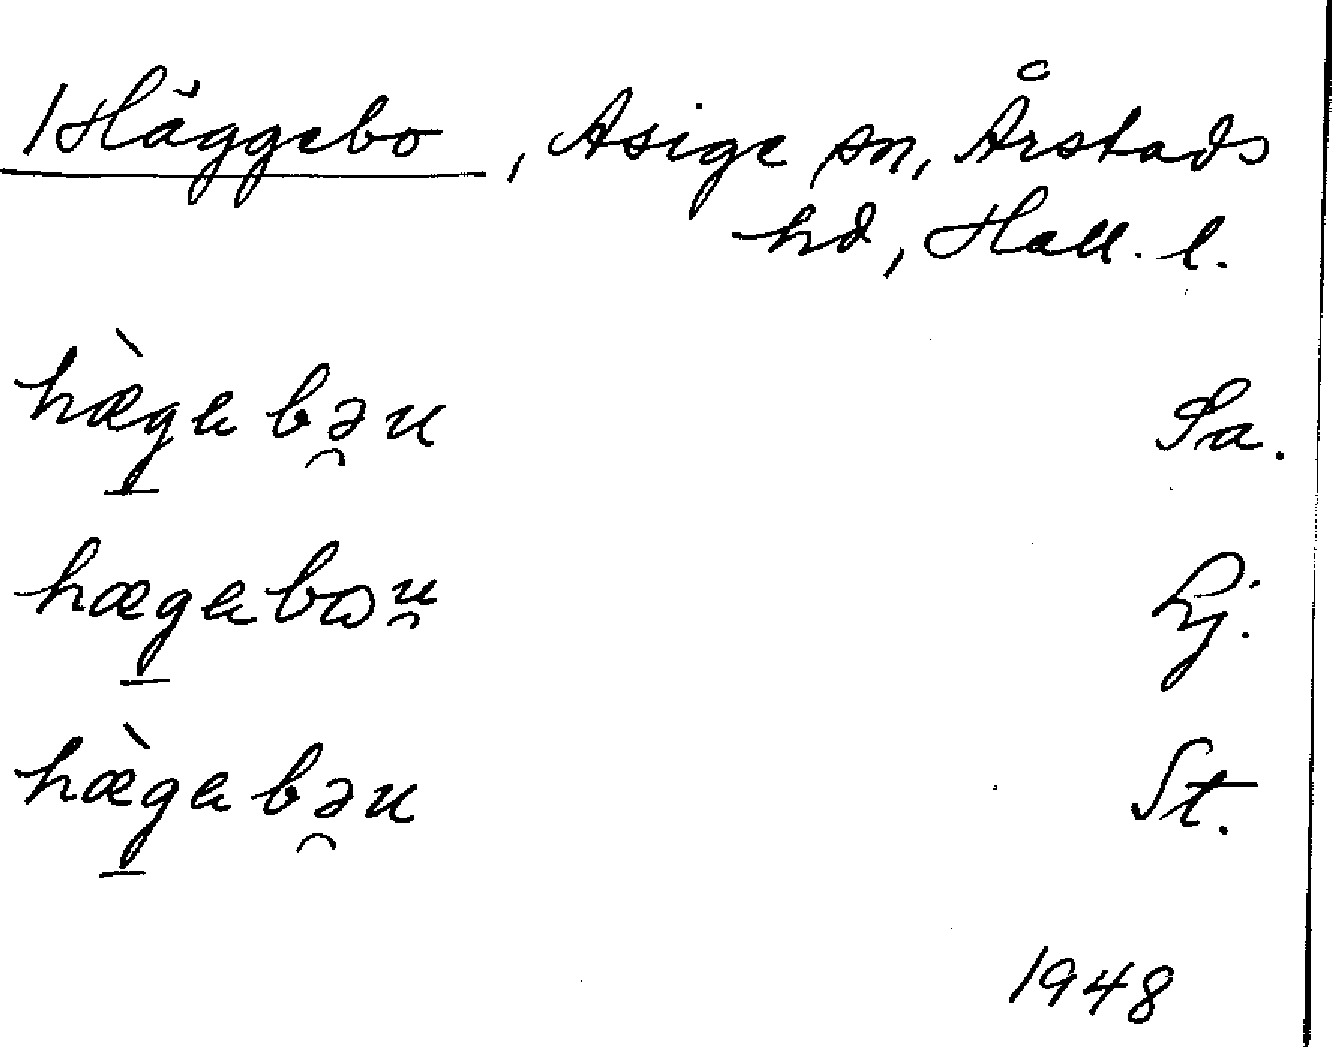 1 Häggebo, Asige sn, Årstads
hd, Hall. l.
hæ̀gebə̯u Sa.
hægebɷu̯ Lj.
hæ̀gebə̯u St.
1948